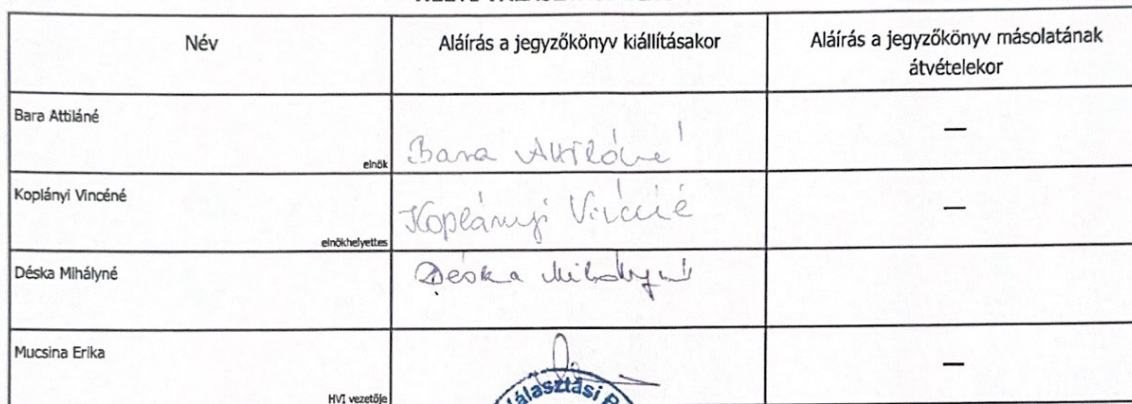 Név
Aláírás a jegyzőkönyv kiállításakor
Aláírás a jegyzőkönyv másolatának
átvételekor
Bara Attiláné
elnök
Bara Attiláné
—
Koplányi Vincéné
elnökhelyettes
Koplányi Vincéné
—
Déska Mihályné
Déska Mihályné
Mucsina Erika
HVI vezetője
—